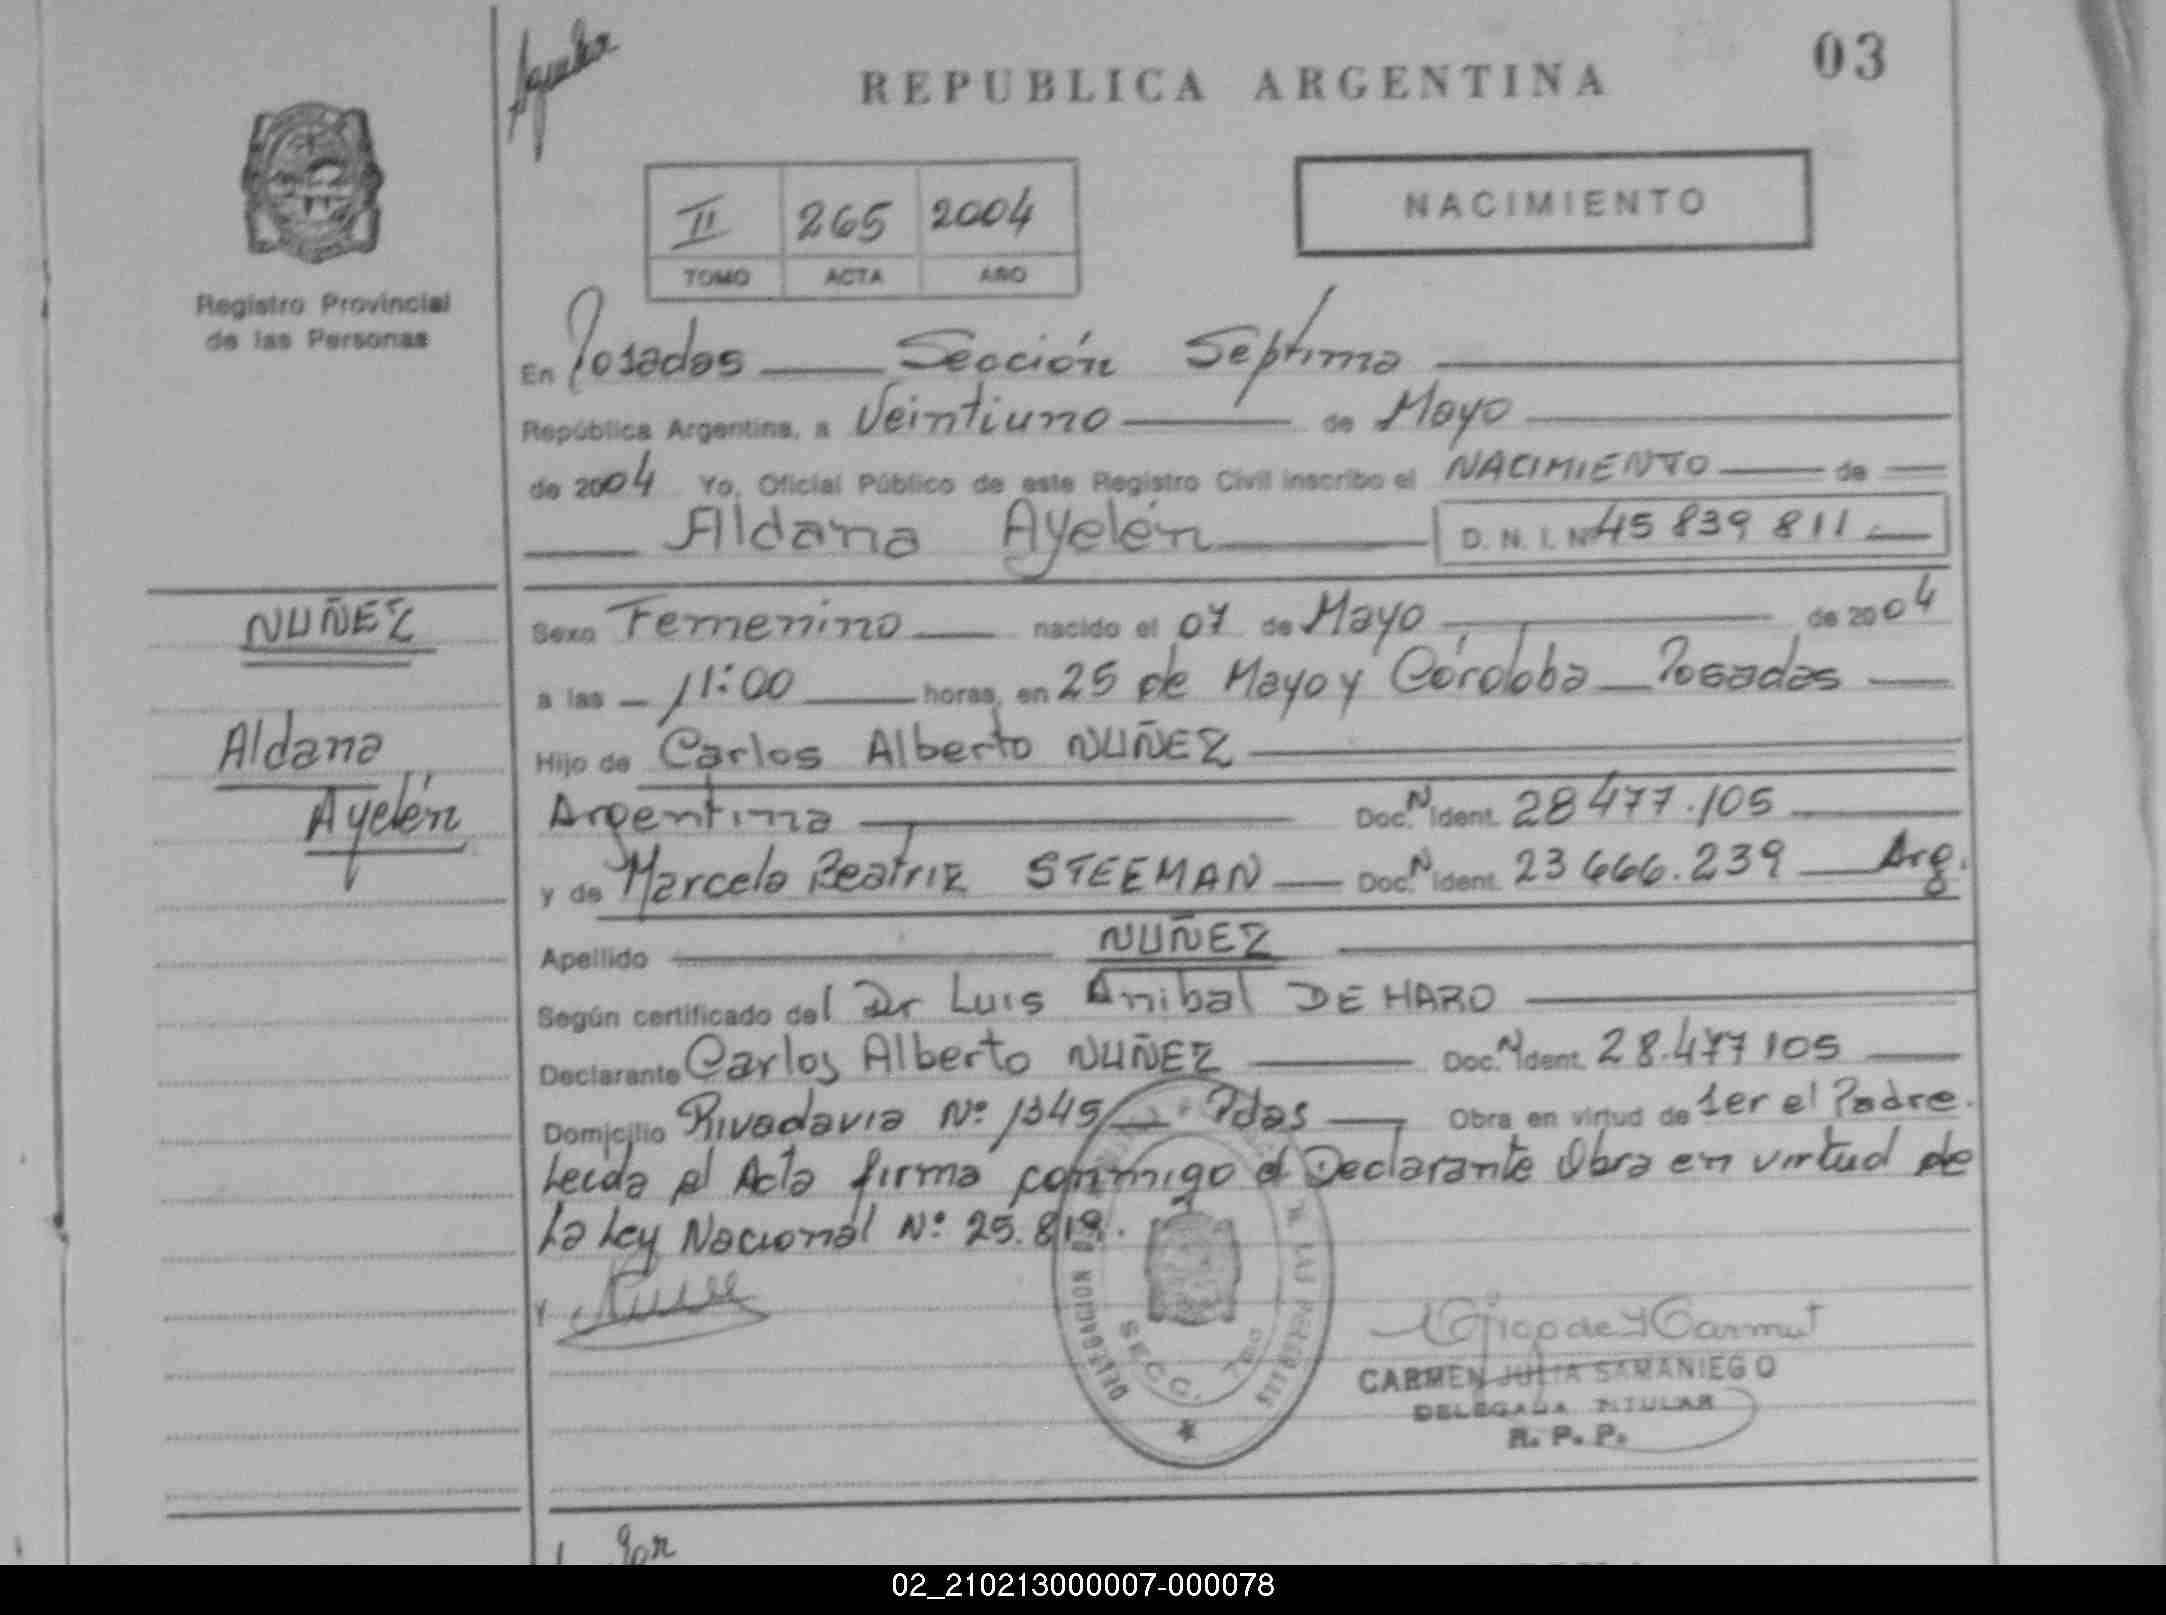 REPUBLICA ARGENTINA
03
NACIMIENTO
II 265 2004
TOMO ACTA AÑO
Registro Provincial
de las Personas
En Posadas Sección Septima
República Argentina, a Veintiuno de Mayo
de 2004 Yo, Oficial Público de este Registro Civil inscribo el NACIMIENTO de
Aldana Ayelén D. N. I. Nº 45 839 811
NUÑEZ
Aldana
Ayelén
Sexo Femenino nacido el 07 de Mayo de 2004
a las 11:00 horas, en 25 de Mayo y Córdoba Posadas
Hijo de Carlos Alberto NUÑEZ
Argentina Doc. N Ident. 28 477.105
y de Marcela Beatriz STEEMAN Doc. N Ident. 23 666.239 Arg.
Apellido NUÑEZ
Según certificado del Dr Luis Anibal DE HARO
Declarante Carlos Alberto NUÑEZ Doc. N Ident. 28.477 105
Domicilio Rivadavia Nº 1345 Pdas Obra en virtud de ser el Padre.
Leida el Acta firma conmigo el Declarante Obra en virtud de
La Ley Nacional Nº 25.819.
DELEGACION
DE LAS PERSONAS
SECC. 7ma
CARMEN JULIA SAMANIEGO
DELEGADA TITULAR
R. P. P.
02_210213000007-000078